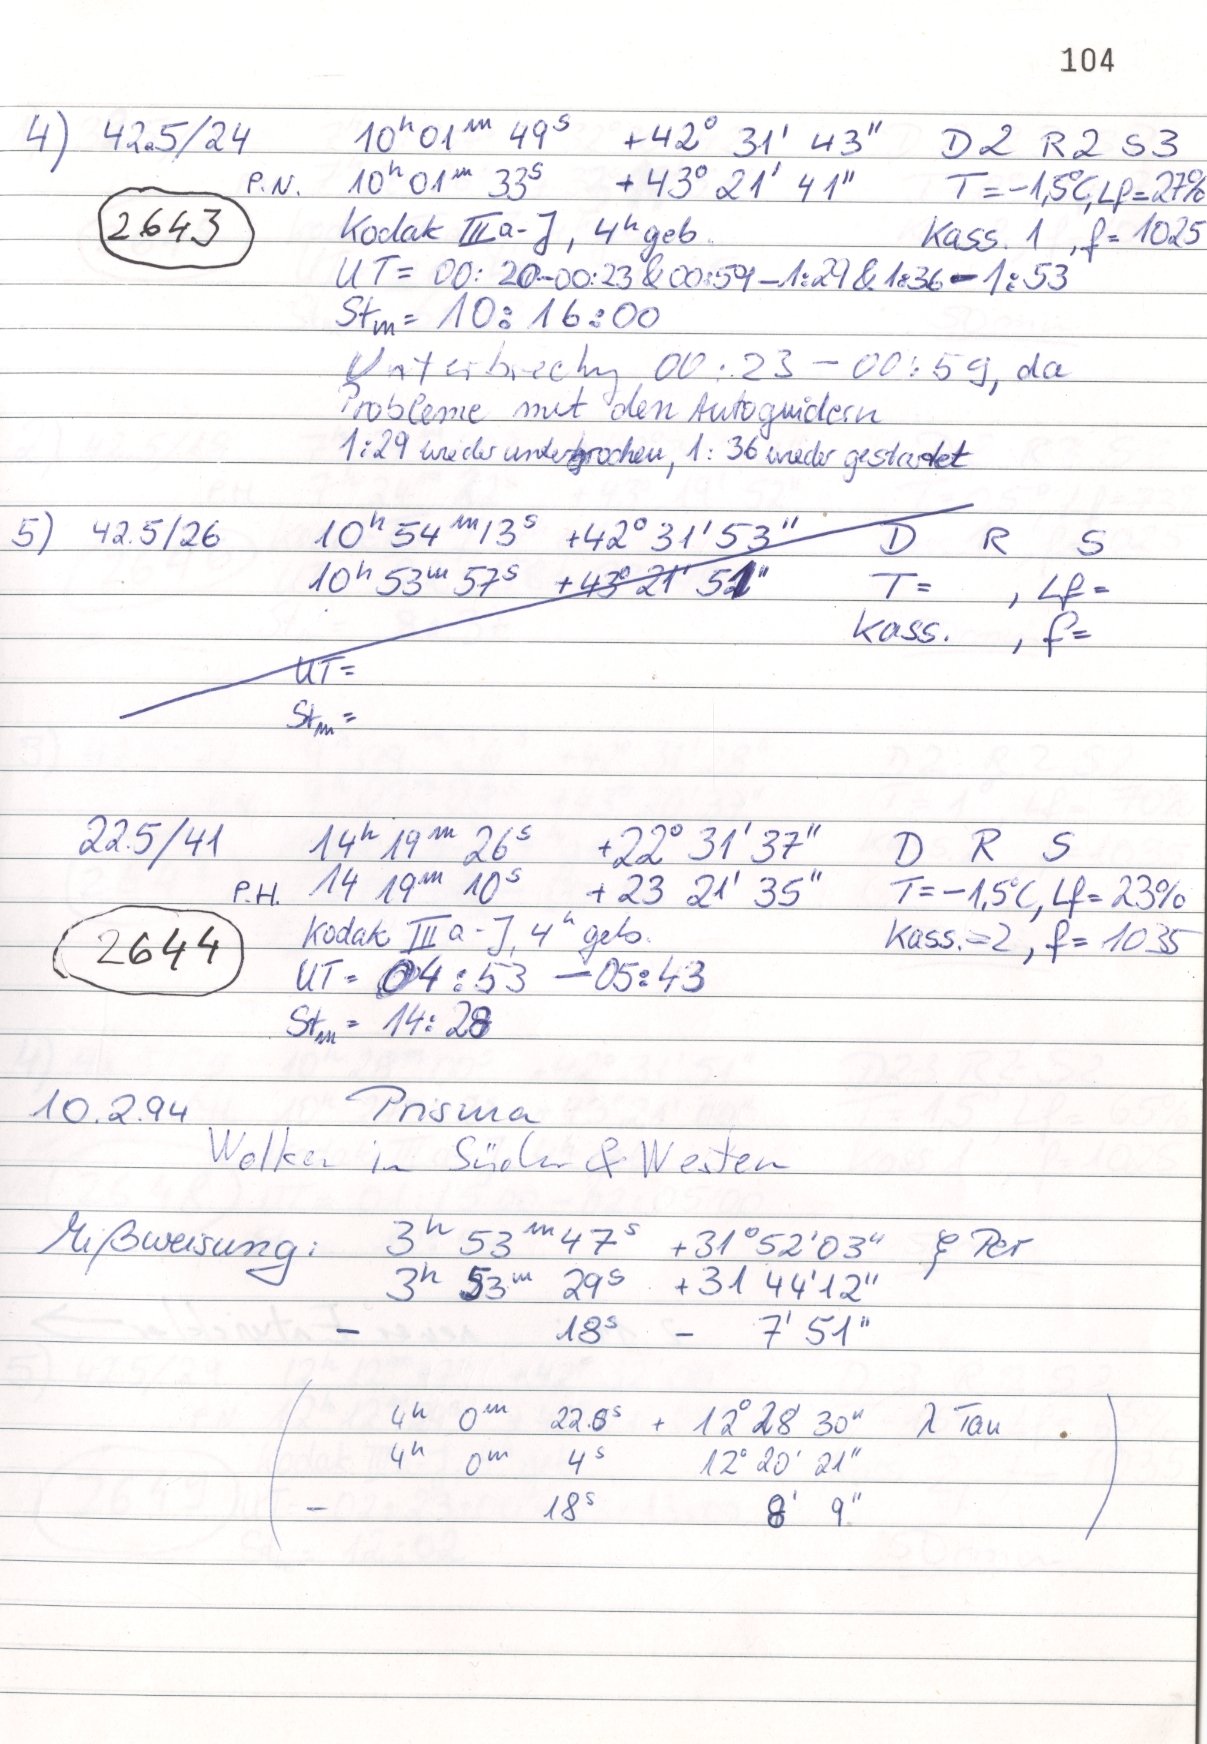 104
4) 42.5/24 10ʰ 01ᵐ 49ˢ +42° 31' 43" D2 R2 S3
P.N. 10ʰ 01ᵐ 33ˢ +43° 21' 41" T=-1,5°C, Lf=27%
2643 Kodak IIIa-J, 4ʰ geb. Kass. 1, f=1025
UT= 00:20-00:23 & 00:59-1:29 & 1:36-1:53
Stₘ= 10:16:00
Unterbrechg 00:23 - 00:59, da
Probleme mit den Autoguidern
1:29 wieder unterbrochen, 1:36 wieder gestartet
5) 42.5/26 10ʰ 54ᵐ 13ˢ +42° 31' 53" D R S
10ʰ 53ᵐ 57ˢ +43° 21' 51" T= , Lf=
Kass. , f=
UT=
Stₘ=
22.5/41 14ʰ 19ᵐ 26ˢ +22° 31' 37" D R S
P.H. 14 19ᵐ 10ˢ +23 21' 35" T=-1,5°C, Lf=23%
2644 Kodak IIIa-J, 4ʰ geb. Kass.=2, f=1035
UT= 04:53 - 05:43
Stₘ= 14:28
10.2.94 Prisma
Wolken im Süden & Westen
Mißweisung: 3ʰ 53ᵐ 47ˢ +31° 52' 03" ξ Per
3ʰ 53ᵐ 29ˢ +31 44' 12"
- 18ˢ - 7' 51"
( 4ʰ 0ᵐ 22.6ˢ + 12° 28' 30" λ Tau )
4ʰ 0ᵐ 4ˢ 12° 20' 21"
- 18ˢ 8' 9"